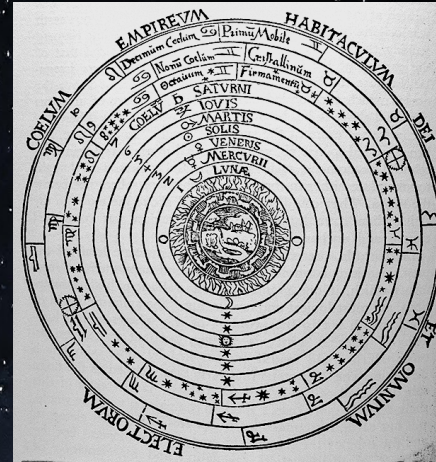 COELVM EMPIREVM HABITACVLVM DEI ET OMNIVM ELECTORVM
Decimum Coelum Primū Mobile
Nonū Coelum Cristallinum
Octauum Firmamentū
COELV
SATVRNI
IOVIS
MARTIS
SOLIS
VENERIS
MERCVRII
LVNÆ
7 6 5 4 3 2 1